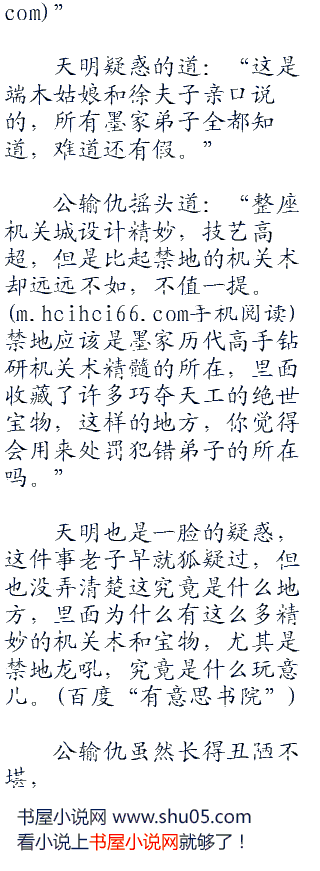 com)”
天明疑惑的道：“这是
端木姑娘和徐夫子亲口说
的，所有墨家弟子全都知
道，难道还有假。”
公输仇摇头道：“整座
机关城设计精妙，技艺高
超，但是比起禁地的机关术
却远远不如，不值一提。
(m.hcihci66.com手机阅读)
禁地应该是墨家历代高手钻
研机关术精髓的所在，里面
收藏了许多巧夺天工的绝世
宝物，这样的地方，你觉得
会用来处罚犯错弟子的所在
吗。”
天明也是一脸的疑惑，
这件事老子早就狐疑过，但
也没弄清楚这究竟是什么地
方，里面为什么有这么多精
妙的机关术和宝物，尤其是
禁地龙吼，究竟是什么玩意
儿。(百度“有意思书院”)
公输仇虽然长得丑陋不
堪，
书屋小说网 www.shu05.com
看小说上书屋小说网就够了！